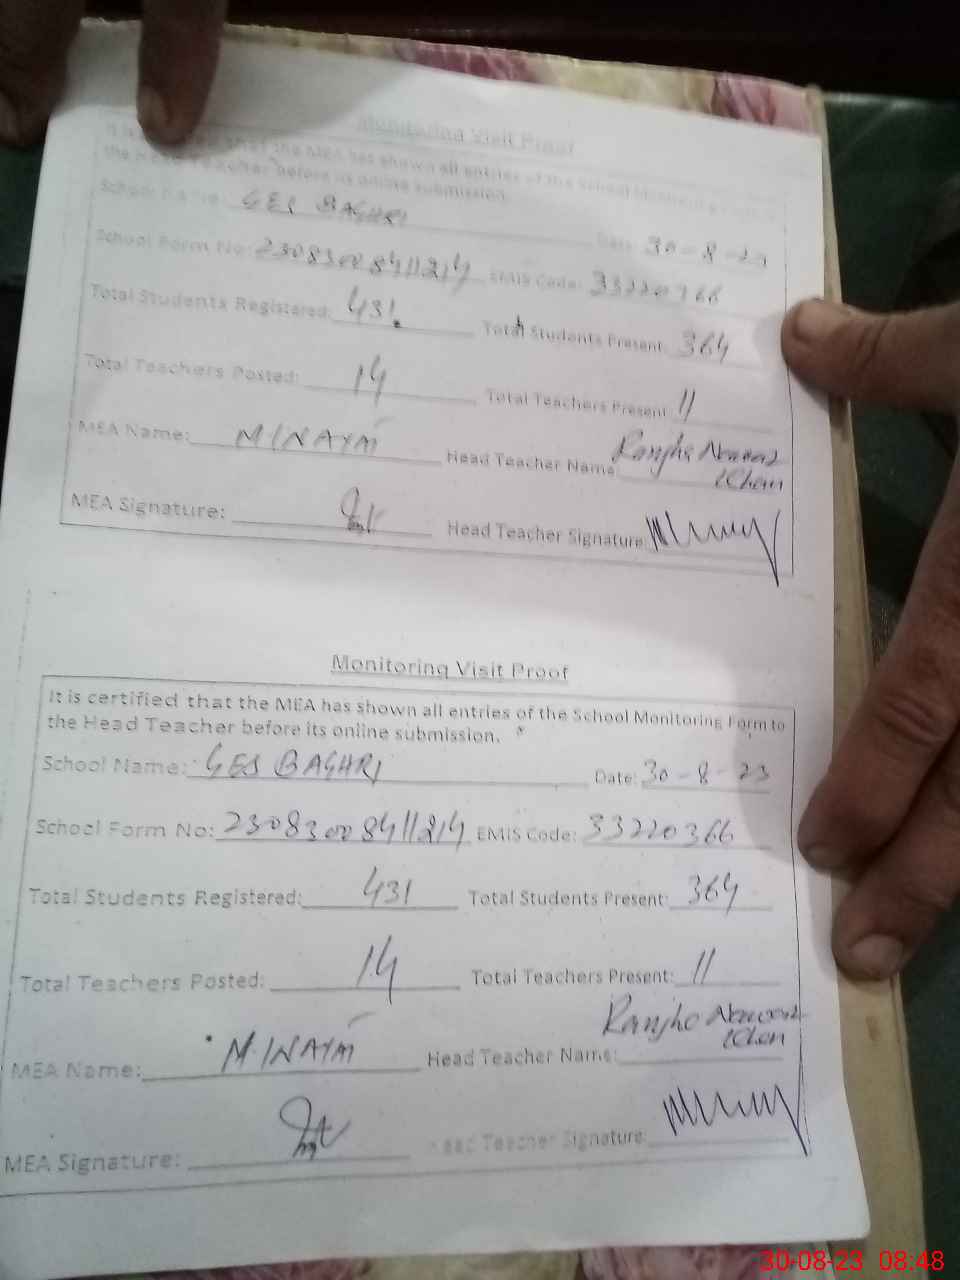 Monitoring Visit Proof
It is that the MEA has shown all entries of the School Monitoring
the Head Teacher before its online submission.
School Name: GES BAGHRI Date: 30-8-23
School Form No: 23083008411214 EMIS Code: 33220366
Total Students Registered: 431 Total Students Present: 364
Total Teachers Posted: 14 Total Teachers Present 11
MEA Name: M INAYAT Head Teacher Name: Ranjha Nawaz
Khan
MEA Signature: Head Teacher Signature:
Monitoring Visit Proof
It is certified that the MEA has shown all entries of the School Monitoring Form to
the Head Teacher before its online submission.
School Name: GES BAGHRI Date: 30-8-23
School Form No: 23083008411214 EMIS Code: 33220366
Total Students Registered: 431 Total Students Present: 364
Total Teachers Posted: 14 Total Teachers Present: 11
MEA Name: M. INAYAT Head Teacher Name: Ranjha Nawaz
Khan
MEA Signature: Head Teacher Signature:
30-08-23 08:48